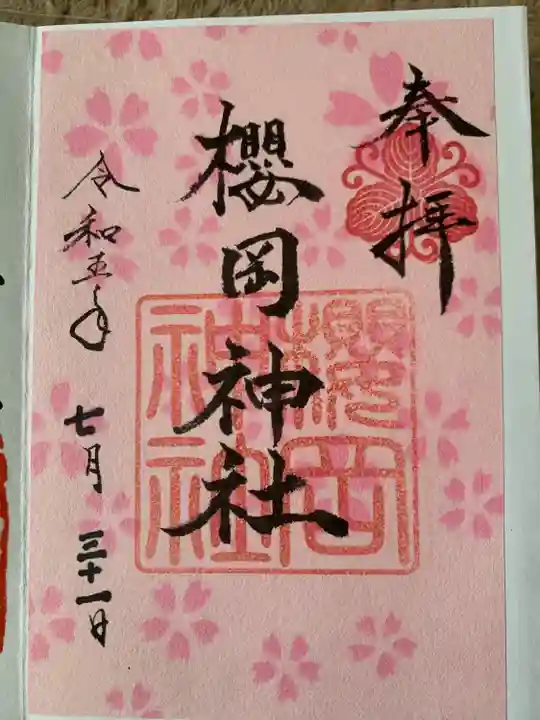 奉拝
櫻岡神社
櫻岡
神社
令和五年
七月三十一日